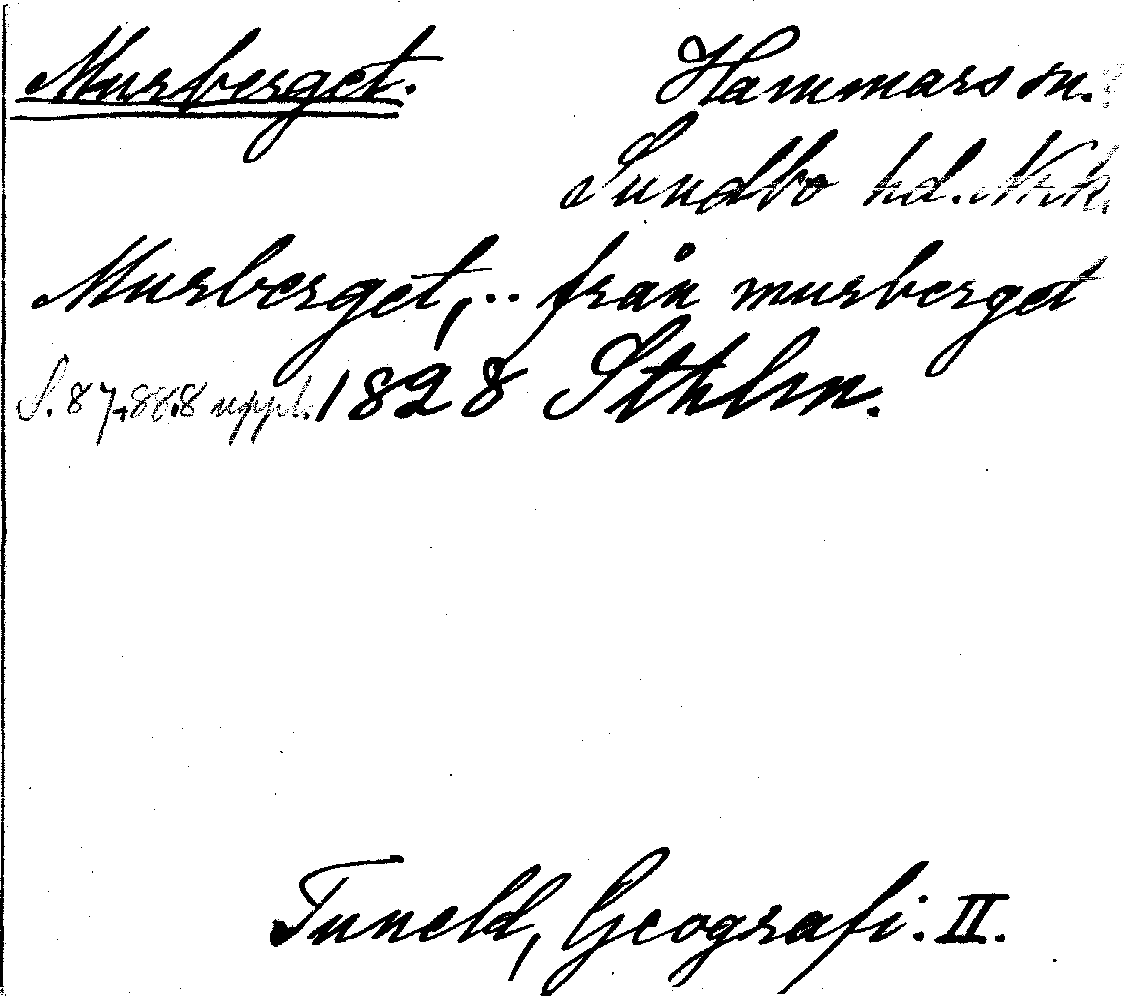 Murberget. Hammars sn.
Sundbo hd. Nrk.
Murberget, .. från murberget
S. 87, 88. 8 uppl. 1828 Sthlm.
Tuneld, Geografi. II.